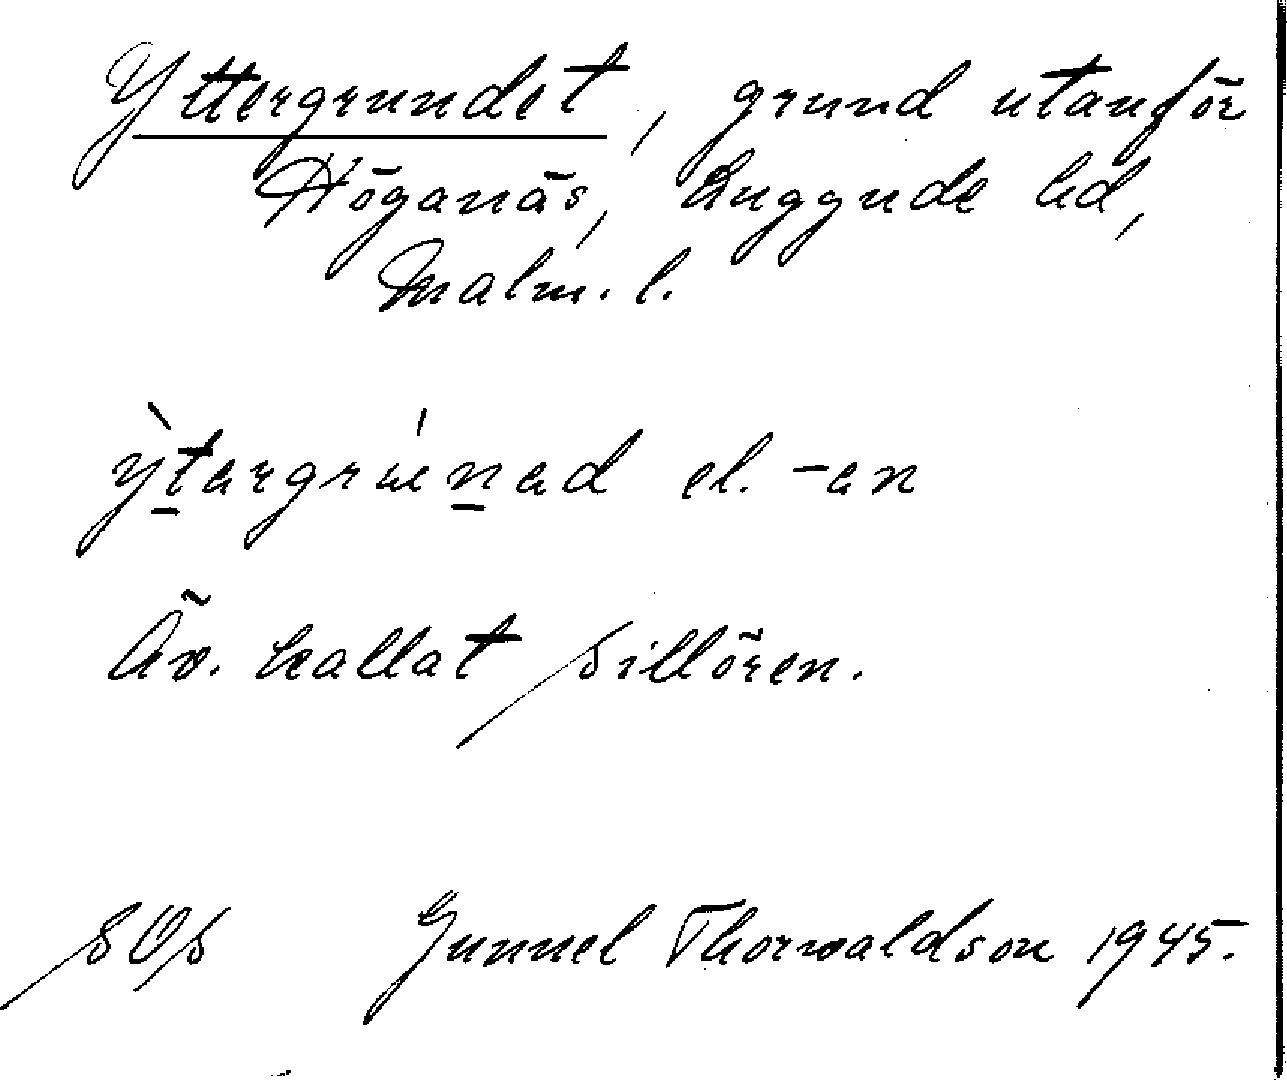 Yttergrundet, grund utanför
Höganäs, Luggude hd,
Malm. l.
ỳtargrúenad el. -an
Äv. kallat Sillören.
SOS Gunnel Thorwaldson 1945.